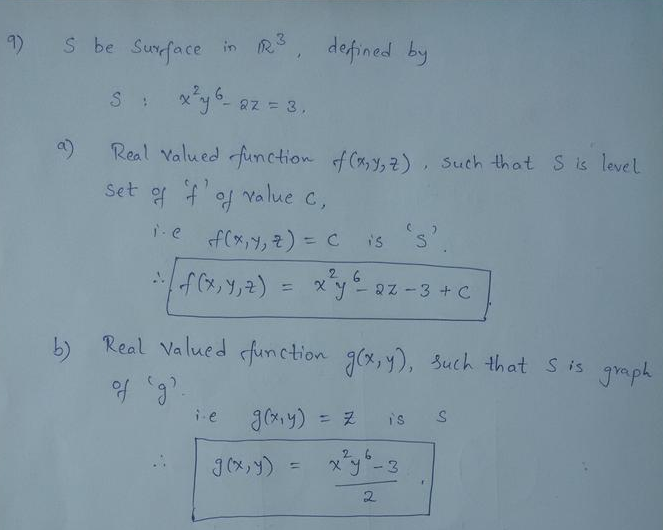 9) S be Surface in ℝ³, defined by
S : x²y⁶ - 2z = 3.
a) Real valued function f(x,y,z), such that S is level
set of 'f' of value c,
i.e f(x,y,z) = c is 'S'.
∴ f(x,y,z) = x²y⁶ - 2z - 3 + c
b) Real valued function g(x,y), such that S is graph
of 'g'.
i.e g(x,y) = z is S
∴ g(x,y) = (x²y⁶ - 3)/2.